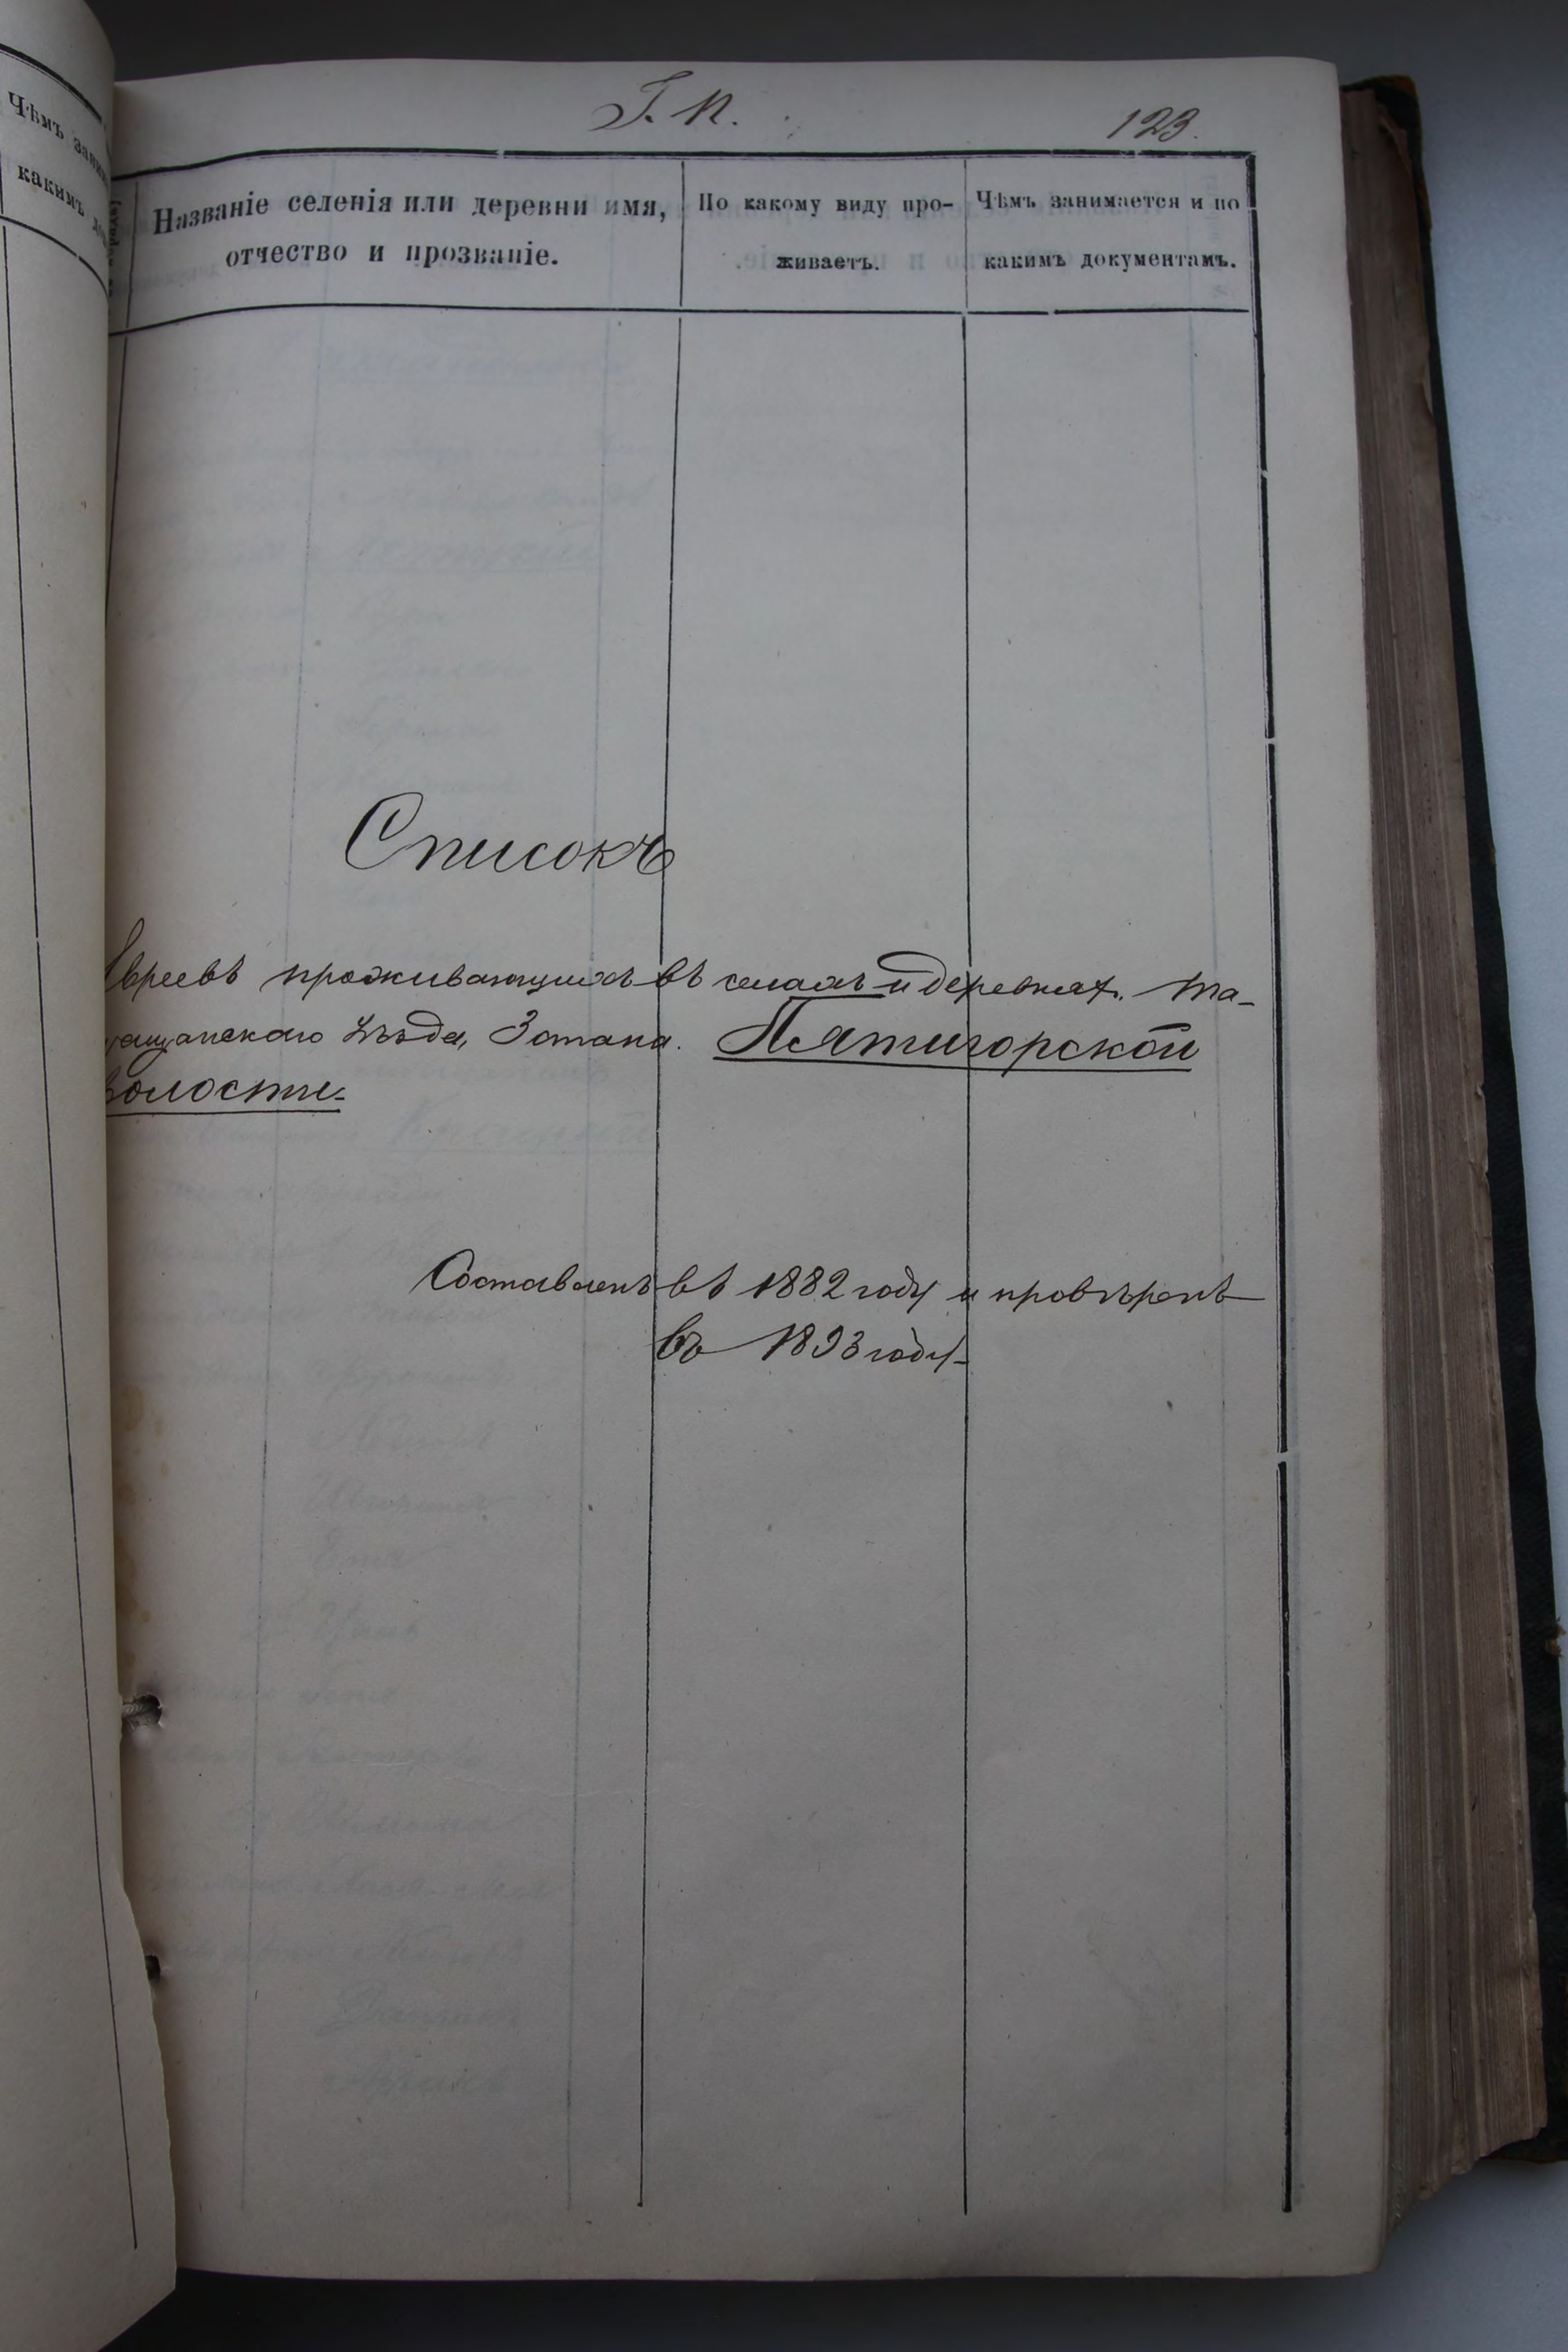 Г. П.
123.
Чѣмъ зани
какимъ до
Названіе селенія или деревни имя,
отчество и прозваніе.
По какому виду про-
живаетъ.
Чѣмъ занимается и по
какимъ документамъ.
Списокъ
Евреевъ проживающихъ въ селахъ и деревнях. Та-
ращанскаго уѣзда, 3 стана. Пятигорской
волости.
Составленъ въ 1882 году и провѣренъ
въ 1893 году.